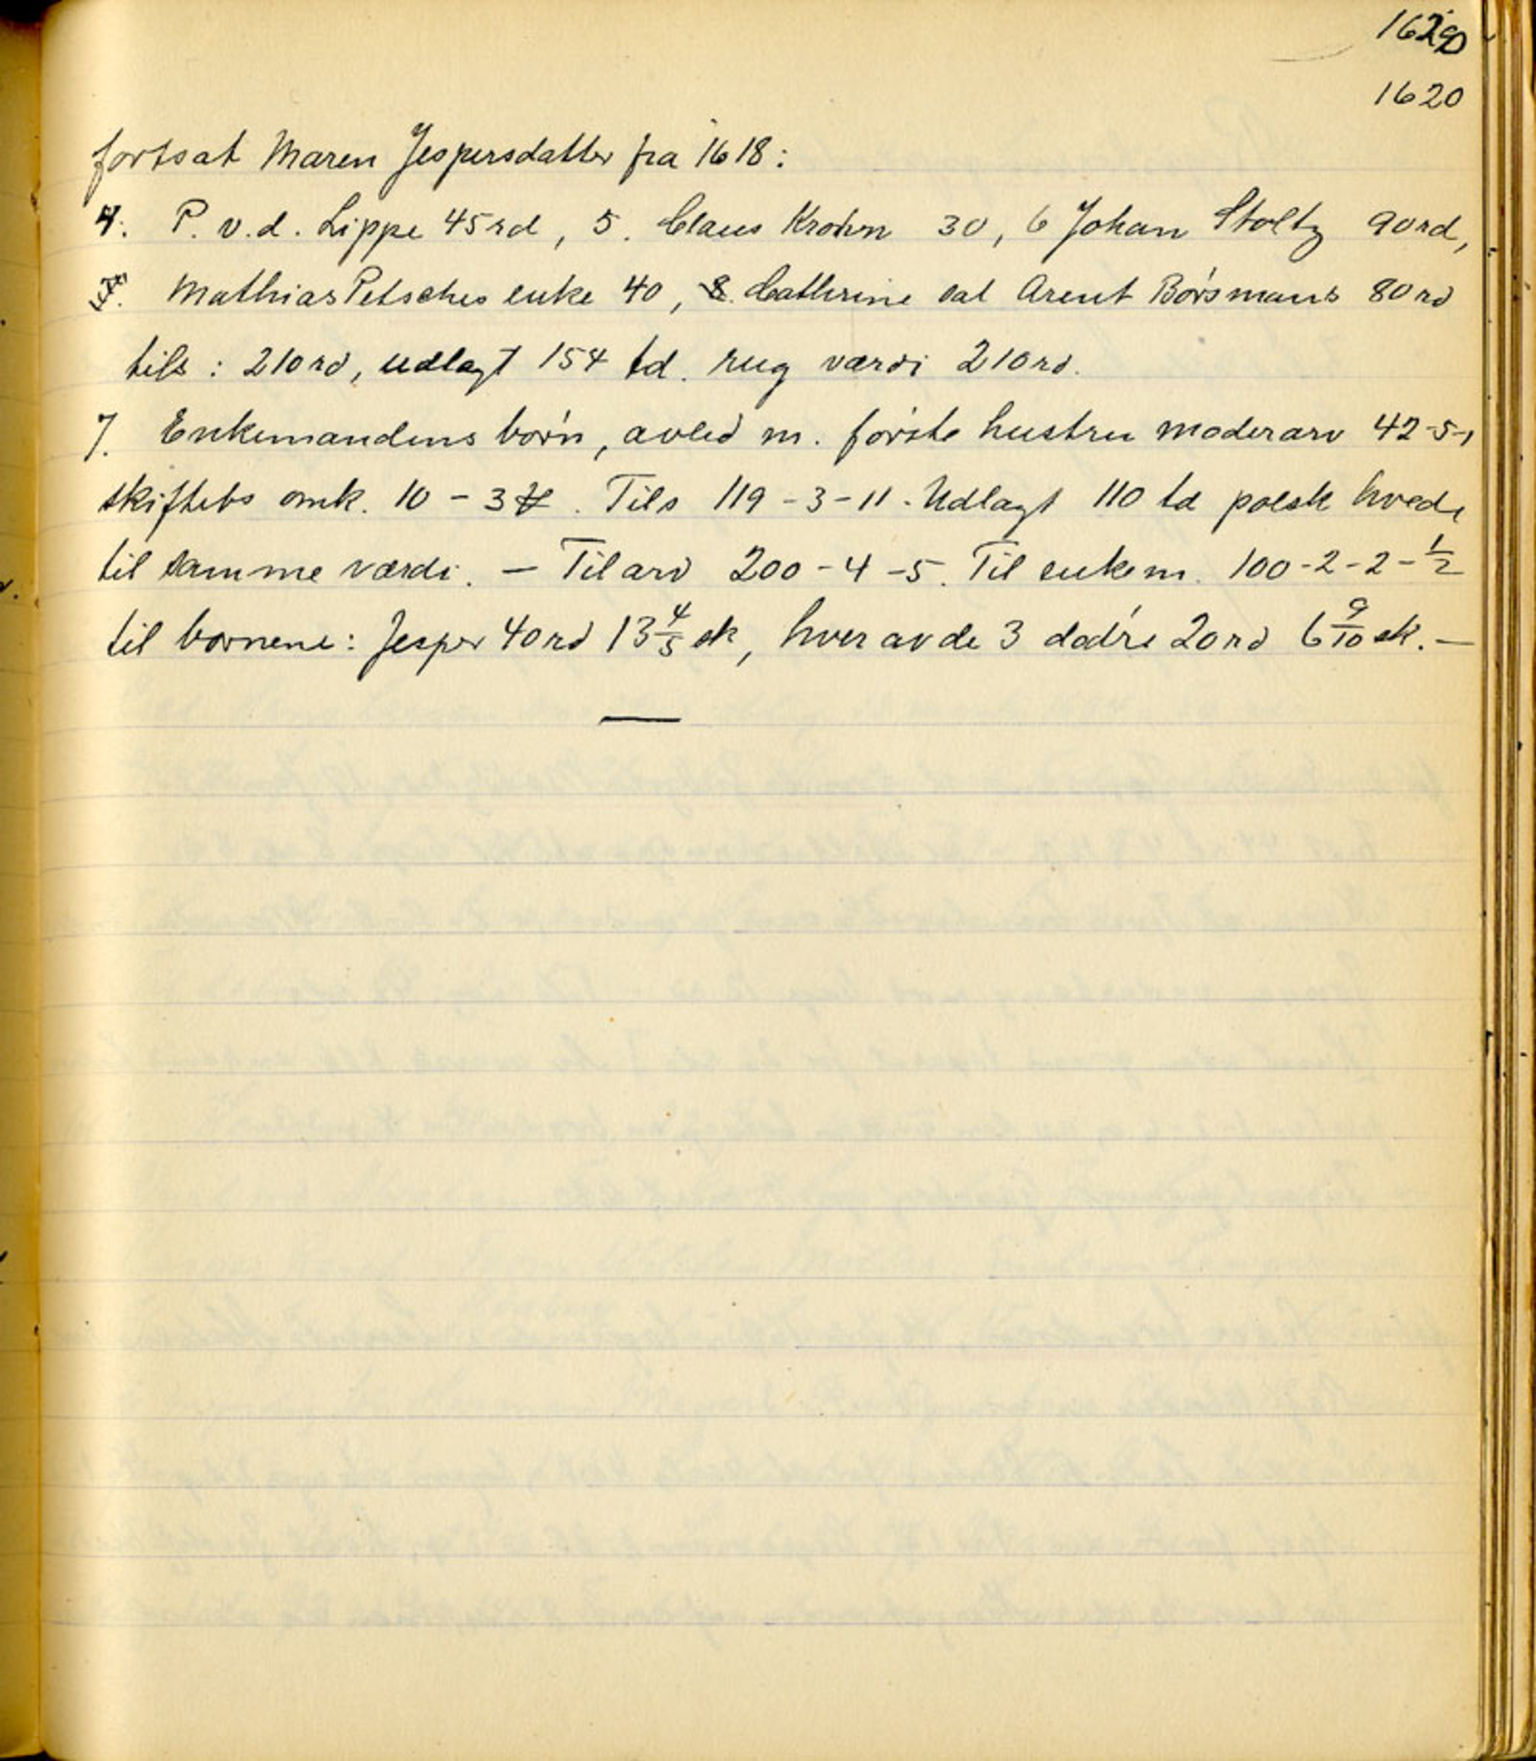 1620
fortsat Maren Jespersdatter fra 1618:
4. P. v. d. Lippe 45rd, 5. Claus Krohn 30, 6 Johan Stoltz 90rd,
Mathias Petsches enke 40, 8. Cathrine sal Arent Börsmans 80rd
tils: 210rd, udlagt 154 td. rug værdi 210rd.
7. Enkemandens börn, avled m. förste hustru moderarv 42-5-1
skiftets omk. 10 - 3 Tils 119 - 3 - 11. Udlagt 110 td polsk hvede
til samme værdi. — Til arv 200 - 4 - 5. Til enkem. 100 - 2 - 2 - ½
til bornene: Jesper 40rd 13 4/5 sk, hver av de 3 dødre 20rd 6 9/10 sk. —